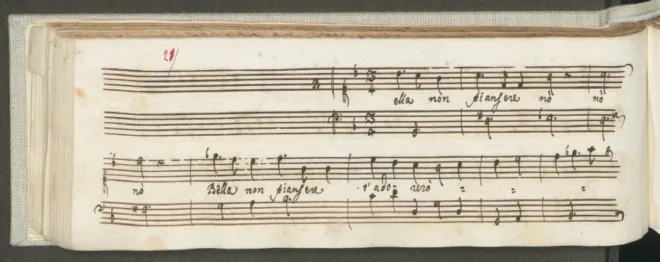 21
ella non piangere no no
no Bella non piangere t'ado= rerò = = =